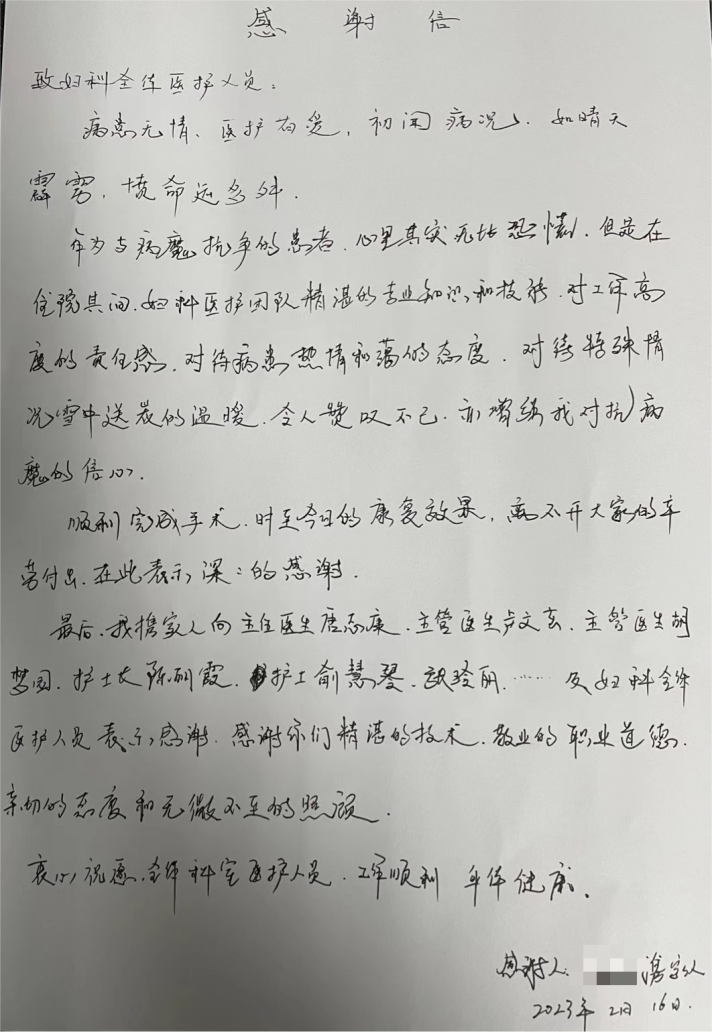 感谢信
致妇科全体医护人员:
病患无情、医护有爱,初闻病况、如晴天
霹雳,愤命运多舛.
作为与病魔抗争的患者、心里其实无比恐惧、但是在
住院其间、妇科医护团队精湛的专业知识和技能、对工作高
度的责任感、对待病患热情和蔼的态度、对待特殊情
况雪中送炭的温暖、令人赞叹不已、亦增强我对抗病
魔的信心.
顺利完成手术、时至今日的康复效果,离不开大家的辛
劳付出、在此表示深:的感谢.
最后、我携家人向主任医生唐志康、主管医生卢文玄、主管医生胡
梦园、护士长陈丽霞、护士俞慧琴、玲丽、…… 及妇科全体
医护人员表示感谢、感谢你们精湛的技术、敬业的职业道德、
亲切的态度和无微不至的照顾.
衷心祝愿、全体科室医护人员、工作顺利 身体健康.
感谢人: 携家人
2023年2月16日.